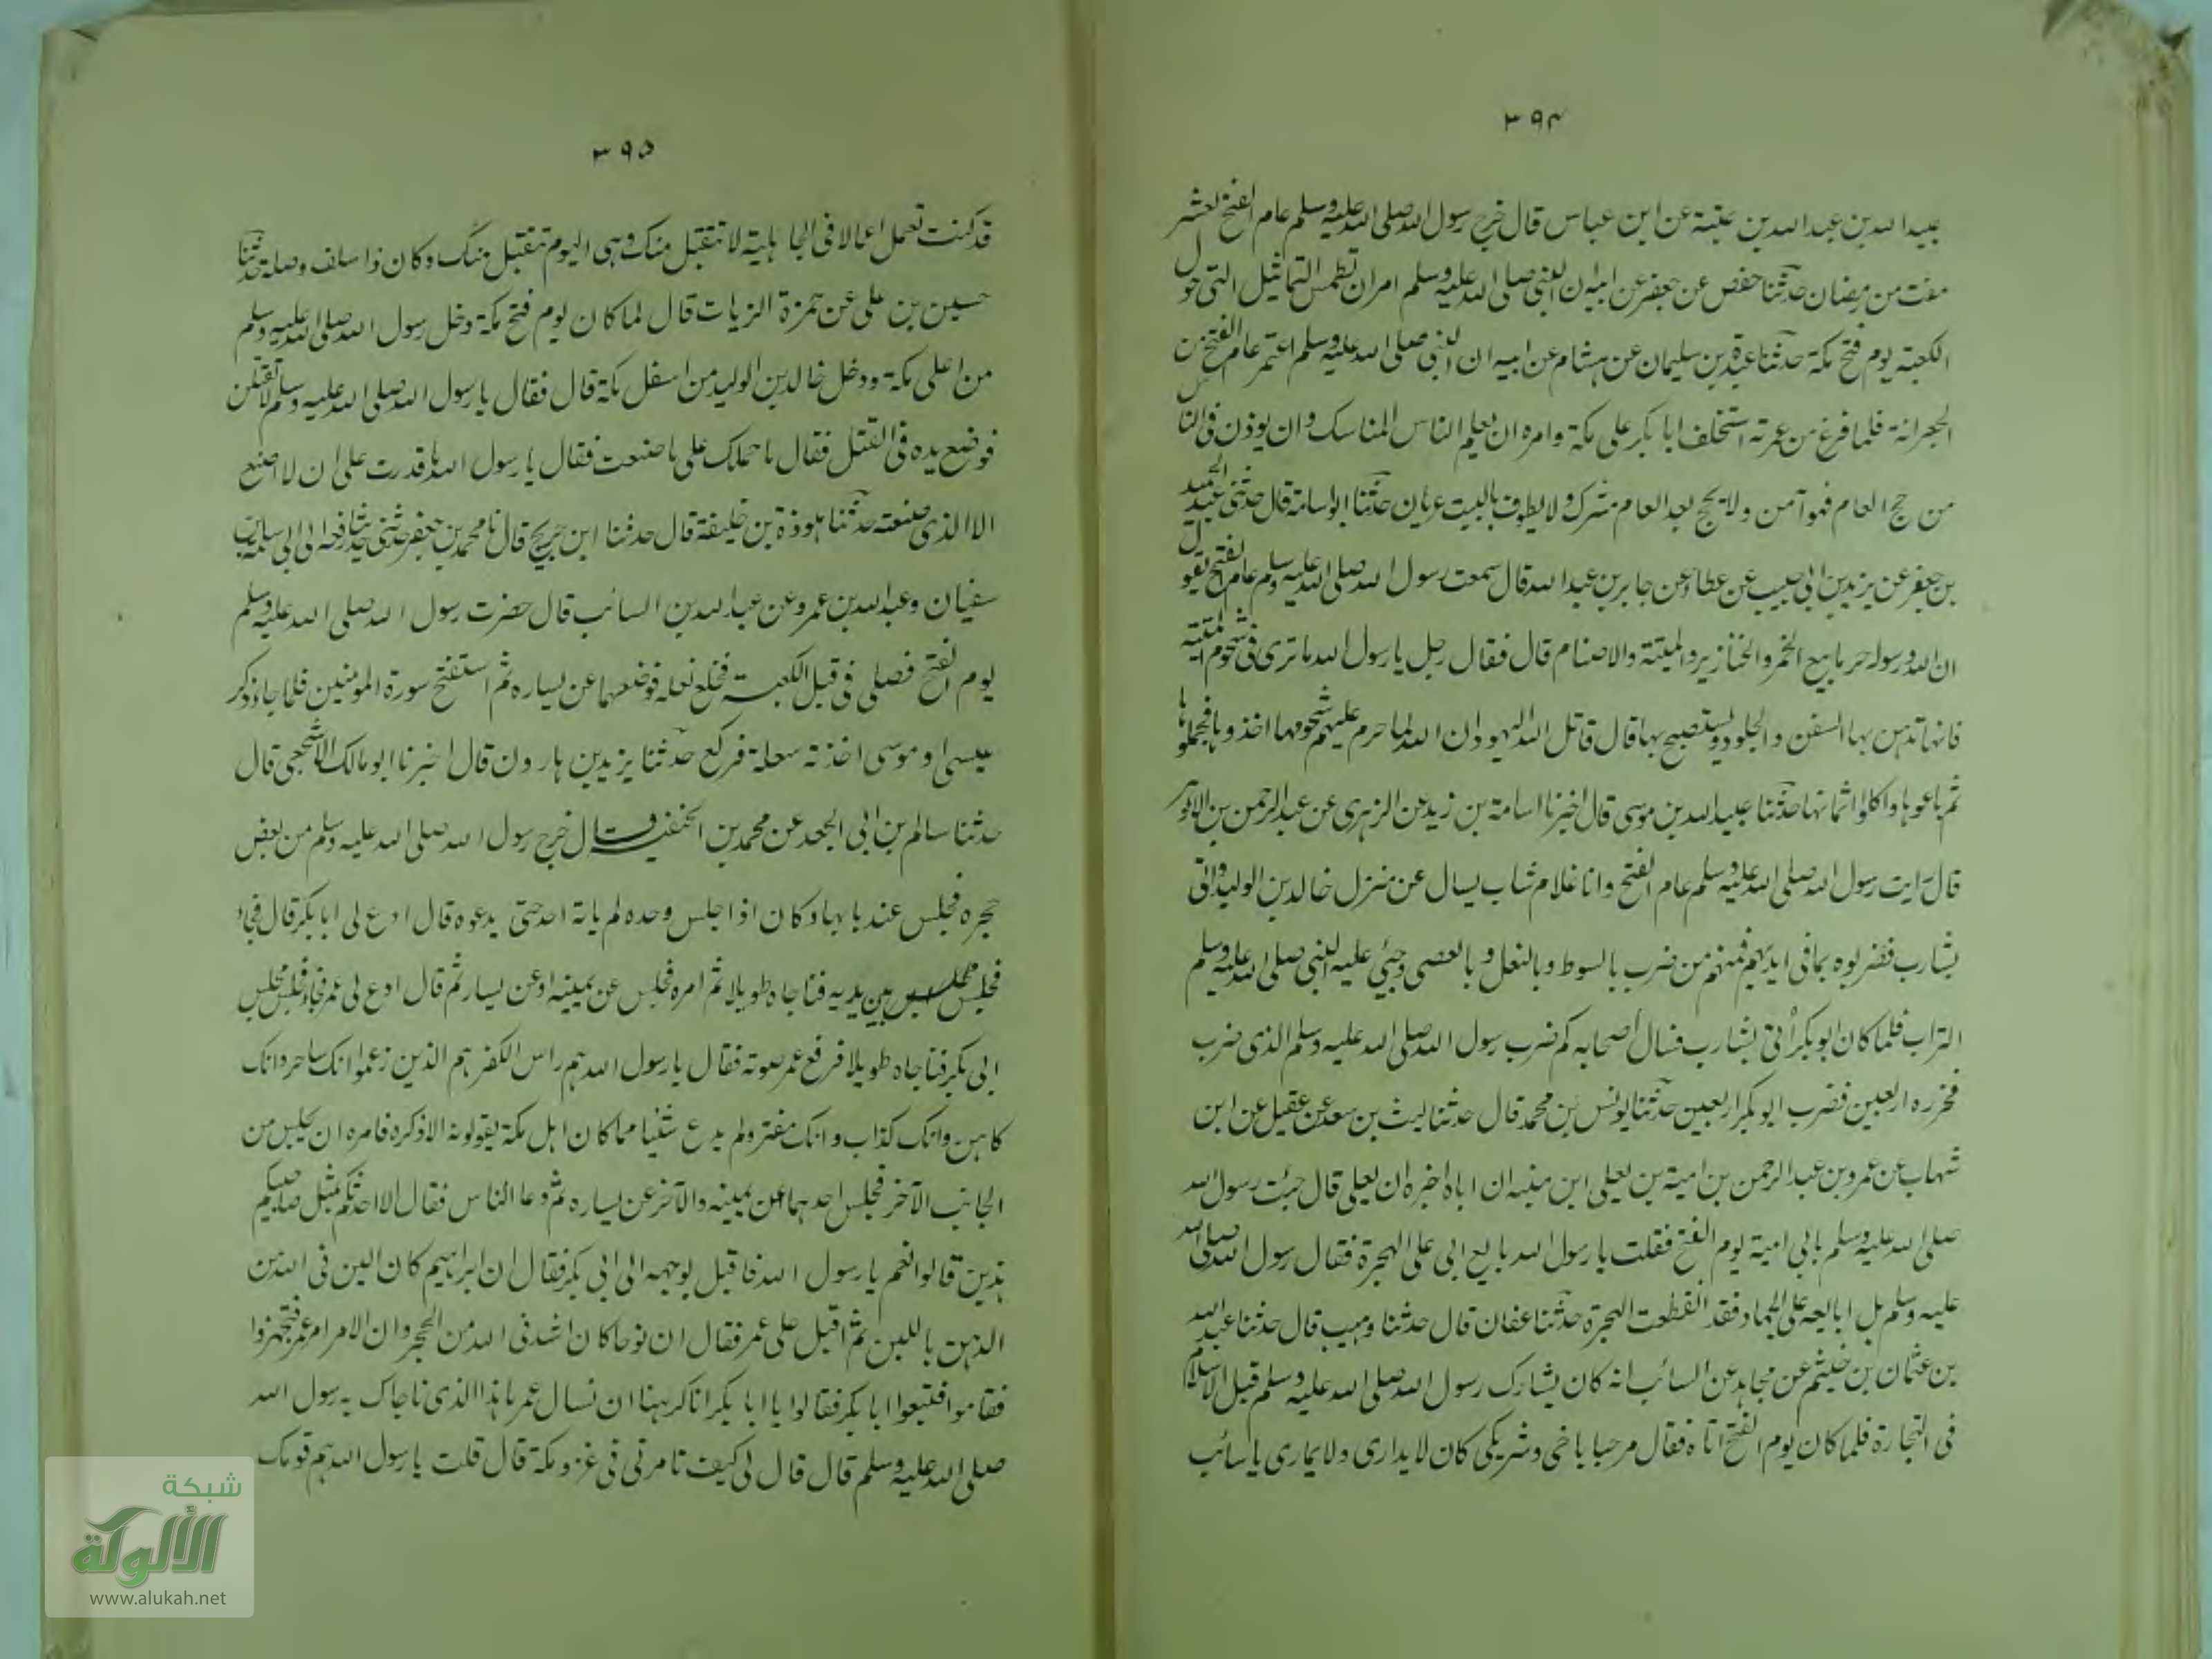 ٣٩٤
عبيدا لله بن عبد الله بن عتبة عن ابن عباس قال خرج رسول الله صلى الله عليه وسلم عام الفتح لعشر
مضت من رمضان حدثنا حفص عن جعفر عن ابيه ان النبي صلى الله عليه وسلم امر ان تطمس التماثيل التي حول
الكعبة يوم فتح مكة حدثنا عبدة بن سليمان عن هشام عن ابيه ان النبي صلى الله عليه وسلم اعتمر عام الفتح من
الجعرانة فلما فرغ من عمرته استخلف ابا بكر على مكة وامره ان يعلم الناس المناسك وان يوذن في الناس
من حج العام فهو آمن ولا يحج بعد العام مشرك ولا يطوف بالبيت عريان حدثنا ابو اسامة قال حدثني عبد الحميد
بن جعفر عن يزيد بن ابي حبيب عن عطاء عن جابر بن عبد الله قال سمعت رسول الله صلى الله عليه وسلم عام الفتح يقول
ان الله ورسوله حرما بيع الخمر والخنازير والميتة والاصنام قال فقال رجل يا رسول الله ما ترى في شحوم الميتة
فانها تدهن بها السفن والجلود ويستصبح بها قال قاتل الله اليهود ان الله لما حرم عليهم شحومها اخذوها فجملوها
ثم باعوها واكلوا اثمانها حدثنا عبيد الله بن موسى قال اخبرنا اسامة بن زيد عن الزهرى عن عبد الرحمن بن الازهر
قال رايت رسول الله صلى الله عليه وسلم عام الفتح وانا غلام شاب يسال عن منزل خالد بن الوليد واتى
بشارب فضربوه بما في ايديهم فمنهم من ضرب بالسوط وبالنعل وبالعصى وحثي عليه النبي صلى الله عليه وسلم
التراب فلما كان ابو بكر أتي بشارب فسال أصحابه كم ضرب رسول الله صلى الله عليه وسلم الذي ضرب
فحزره اربعين فضرب ابو بكر اربعين حدثنا يونس بن محمد قال حدثنا ليث بن سعد عن عقيل عن ابن
شهاب عن عمرو بن عبد الرحمن بن امية بن يعلى ابن منبه ان اباه اخبره ان يعلى قال جئت رسول الله
صلى الله عليه وسلم بابي امية يوم الفتح فقلت يا رسول الله بايع ابي على الهجرة فقال رسول الله صلى الله
عليه وسلم بل ابايعه على الجهاد فقد انقطعت الهجرة حدثنا عفان قال حدثنا وهيب قال حدثنا عبد الله
بن عثمان بن خثيم عن مجاهد عن السائب انه كان يشارك رسول الله صلى الله عليه وسلم قبل الاسلام
في التجارة فلما كان يوم الفتح اتاه فقال مرحبا باخي وشريكي كان لا يداري ولا يماري يا سائب
٣٩٥
قد كنت تعمل اعمالا في الجاهلية لا تتقبل منك وهي اليوم تتقبل منك وكان ذا سلف وصلة حدثنا
حسين بن على عن حمزة الزيات قال لما كان يوم فتح مكة دخل رسول الله صلى الله عليه وسلم
من اعلى مكة ودخل خالد بن الوليد من اسفل مكة قال فقال يا رسول الله صلى الله عليه وسلم لا تقتلن
فوضع يده في القتل فقال ما حملك على ما صنعت فقال يا رسول الله ما قدرت على ان لا اصنع
الا الذي صنعته حدثنا هوذة بن خليفة قال حدثنا ابن جريج قال نا محمد بن جعفر
سفيان وعبد الله بن عمرو عن عبد الله بن السائب قال حضرت رسول الله صلى الله عليه وسلم
يوم الفتح فصلى في قبل الكعبة فخلع نعليه فوضعهما عن يساره ثم استفتح سورة المومنين فلما جاء ذكر
عيسى او موسى اخذته سعلة فركع حدثنا يزيد بن هارون قال اخبرنا ابو مالك الاشجعي قال
حدثنا سالم بن ابي الجعد عن محمد بن الحنفية قال خرج رسول الله صلى الله عليه وسلم من بعض
حجره فجلس عند بابها وكان اذا جلس وحده لم ياته احد حتى يدعوه قال ادع لي ابا بكر قال فجاء
فجلس بين يديه فناجاه طويلا ثم امره فجلس عن يمينه او عن يساره ثم قال ادع لي عمر فجاء فجلس مجلس
ابي بكر فناجاه طويلا فرفع عمر صوته فقال يا رسول الله هم راس الكفر هم الذين زعموا انك ساحر وانك
كاهن وانك كذاب وانك مفتر ولم يدع شيئا مما كان اهل مكة يقولونه الا ذكره فامره ان يجلس من
الجانب الآخر فجلس احدهما عن يمينه والآخر عن يساره ثم دعا الناس فقال الا احدثكم بمثل صاحبيكم
هذين قالوا نعم يا رسول الله فاقبل بوجهه الى ابي بكر فقال ان ابراهيم كان الين في الله من
الدهن باللبن ثم اقبل على عمر فقال ان نوحا كان اشد في الله من الحجر وان الامر امر عمر فتجهزوا
فقاموا فتبعوا ابا بكر فقالوا يا ابا بكر انا كرهنا ان نسال عمر ما هذا الذي ناجاك به رسول الله
صلى الله عليه وسلم قال قال لي كيف تامرني في غزو مكة قال قلت يا رسول الله هم قومك
شبكة
الألوكة
www.alukah.net